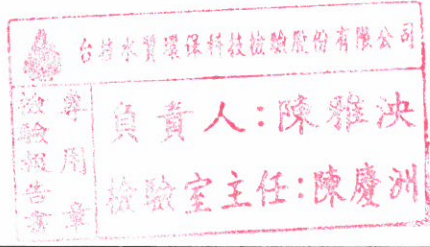 台塑水質環保科技檢驗股份有限公司
檢驗報告業
專用章
負責人:陳雅泱
檢驗室主任:陳慶洲